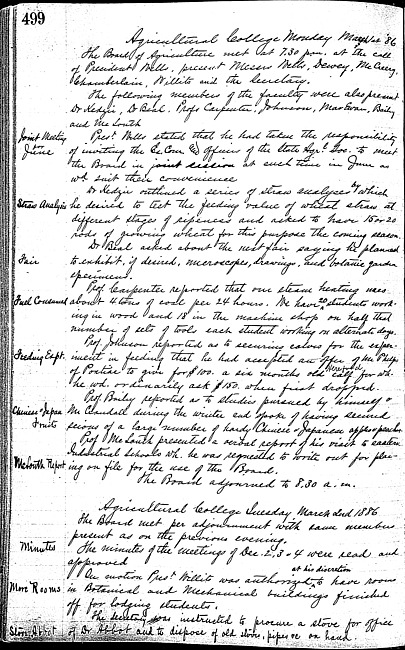 499
Agricultural College Monday March 1st '86
The Board of Agriculture met at 7.30 p.m. at the call
of President Wells, present Messrs Wells, Dewey, McCarry,
Chamberlain, Willits and the Secretary.
The following members of the faculty were also present
Dr Kedzie, Dr Beal, Profs Carpenter, Johnson, MacEwan, Baily
and McLouth
Joint Meeting in June
Prest. Wells stated that he had taken the responsibility
of inviting the Ex Com & officers of the State Agrl. Soc. to meet
the Board in joint session at such time in June as
wd. suit their convenience
Straw Analysis
Dr Kedzie outlined a series of straw analyses by which
he desired to test the feeding value of wheat straw at
different stages of ripeness and asked to have 15 or 20
rods of growing wheat for this purpose the coming season.
Fair
Dr Beal asked about the next fair saying he planned
to exhibit, if desired, microscopes, drawings, and botanic garden
specimens.
Fuel Consumed
Prof Carpenter reported that our steam heating uses
about 4 tons of coal per 24 hours. We have 20 students work-
ing in wood and 18 in the machine shop on half that
number of sets of tools each student working on alternate days.
Feeding Expt.
Prof. Johnson reported as to securing calves for the exper-
iment in feeding that he had accepted an offer of Mr Phelps
of Pontiac to give for $100. a six months old Hereford calf for wh.
he wd. ordinarily ask $150. when first dropped.
Chinese & Japan Fruits
Prof Baily reported as to studies pursued by himself &
Mr Crandall during the winter and spoke of having secured
scions of a large number of hardy Chinese & Japanese apples & peaches
McLouth Report
Prof McLouth presented a verbal report of his visit to eastern
Industrial schools wh. he was requested to write out for plac-
ing on file for the use of the Board.
The Board adjourned to 8.30 a.m.
Agricultural College Tuesday March 2nd 1886
The Board met per adjournment with same members
present as on the previous evening.
Minutes
The minutes of the meetings of Dec. 2, 3 & 4 were read and
approved
More Rooms
On motion Prest. Willits was authorized at his discretion to have rooms
in Botanical and Mechanical buildings finished
off for lodging students.
Stove Abbot
The Secretary was instructed to procure a stove for office
of Dr Abbot and to dispose of old stove, pipe &c on hand.